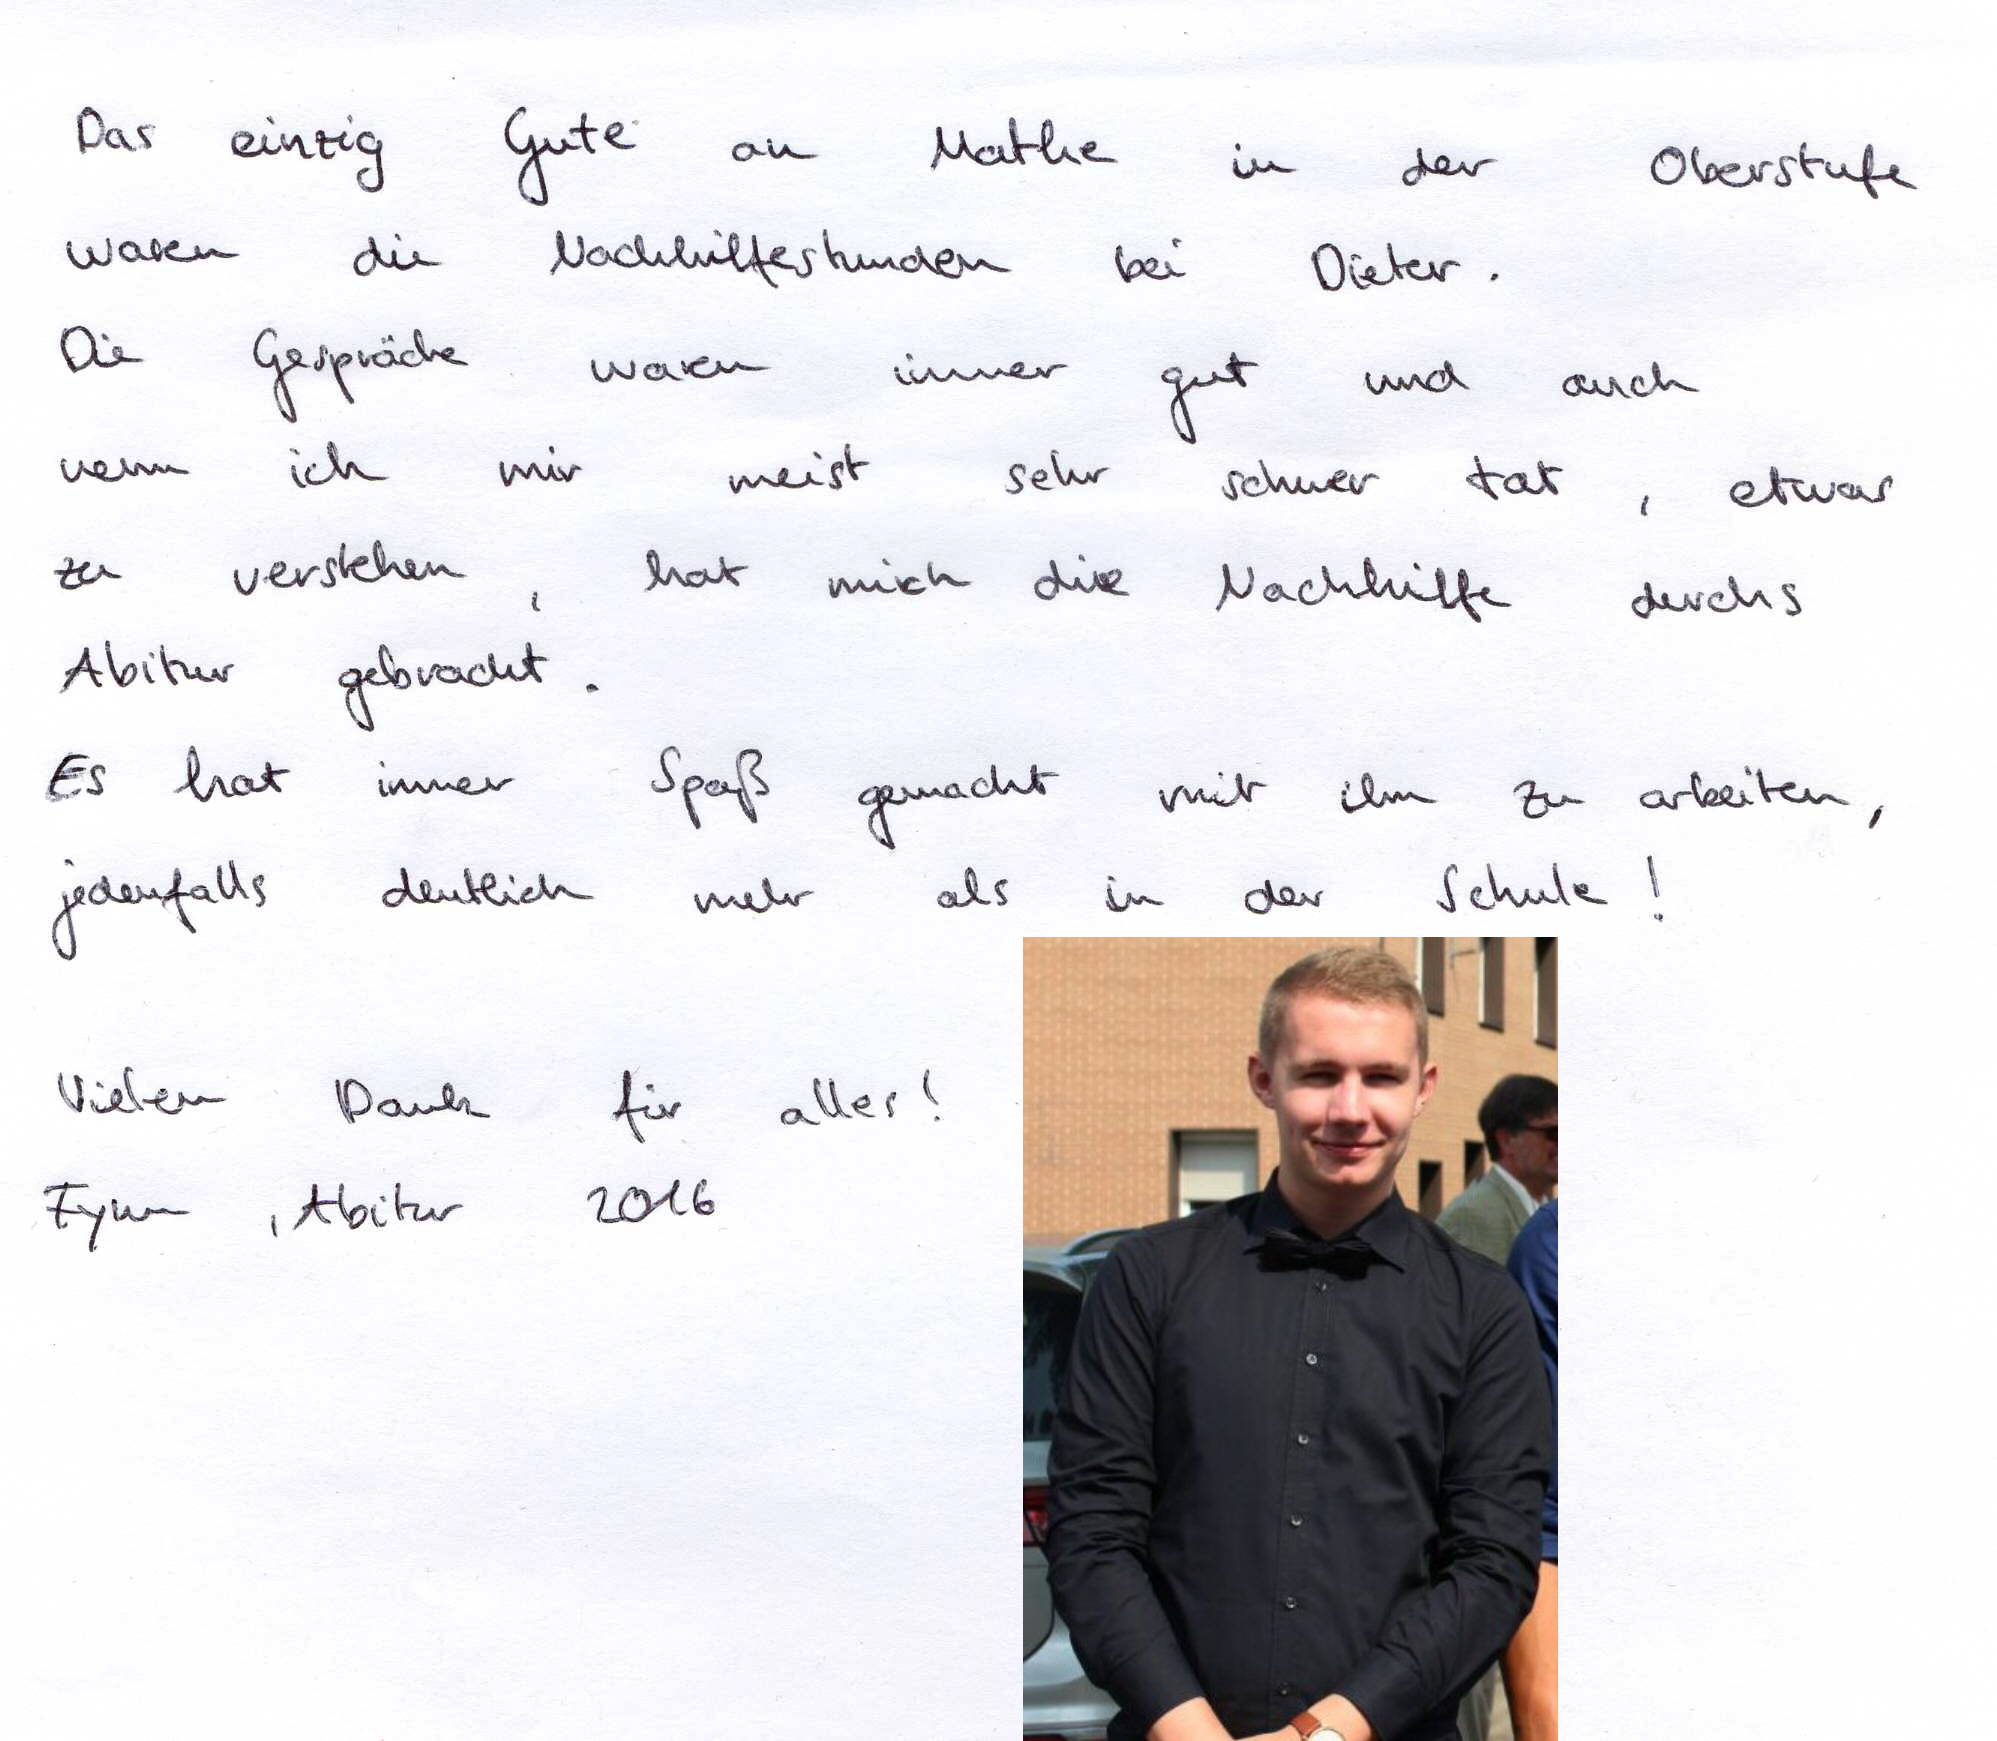 Das einzig Gute an Mathe in der Oberstufe
waren die Nachhilfestunden bei Dieter.
Die Gespräche waren immer gut und auch
wenn ich mir meist sehr schwer tat, etwas
zu verstehen, hat mich die Nachhilfe durchs
Abitur gebracht.
Es hat immer Spaß gemacht mit ihm zu arbeiten,
jedenfalls deutlich mehr als in der Schule!
Vielen Dank für alles!
Fynn, Abitur 2016